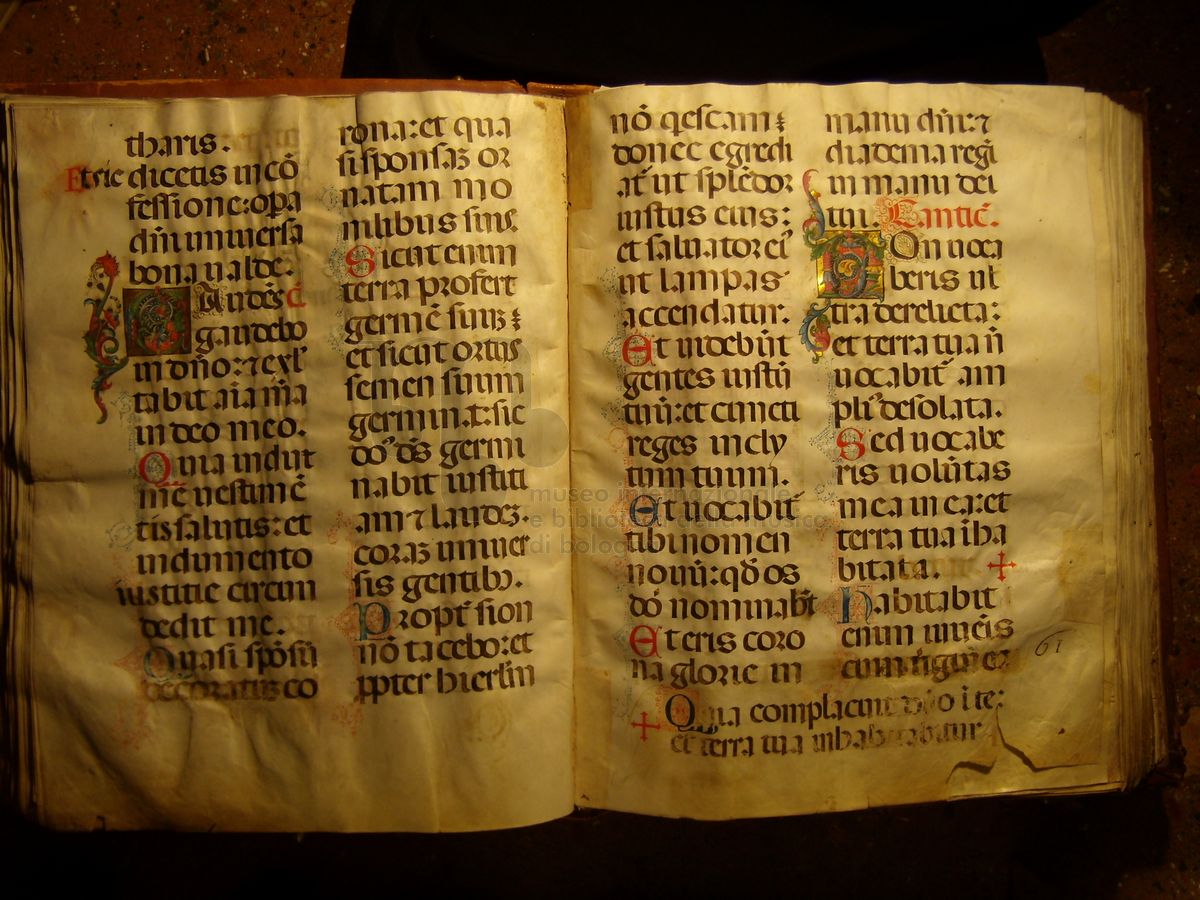 tharis.
Et sic dicetis in cō
fessione: opa
dm̄ universa
bona valde.
Audēs c̄
gaudebo
in dn̄o: ⁊ exl'
tabit aīa m̄a
in deo meo.
Quia indut
me vestimē
tis salutis: et
indumento
iustitie circum
dedit me.
Quasi spōsū
decoratuꝫ co
rona: et qua
si sponsaꝫ or
natam mo
nilibus suis.
Sicut enim
terra profert
germē suuꝫ:
et sicut ortus
semen suum
germinat: sic
do' ds̄ germi
nabit iustiti
am ⁊ laudeꝫ.
coraꝫ univer
sis gentibꝫ.
Propt̄ sion
nō tacebo: et
ꝓpter hierlm̄
nō q̄escam:
donec egredi
at̄ ut splēdor
iustus eius:
et salvator ei'
ut lampas
accendatur.
Et videbūt
gentes iustū
tuū: et cuncti
reges incly
tum tuum.
Et vocabit̄
tibi nomen
novū: qd̄ os
dō nominabt̄
Et eris coro
na glorie in
manu dn̄i: ⁊
diadema regī
in manu dei
tui. Cantic̄.
Non voca
beris ul
tra derelicta:
et terra tua n̄
vocabit̄ am
pli' desolata.
Sed vocabe
ris volūtas
mea in ea: et
terra tua īha
bitata. +
Habitabit
enim iuvēis
cum
61
+ Quia complacuit dn̄o ī te:
et terra tua inhabitabitur
museo internazionale
e biblioteca della musica
di bologna